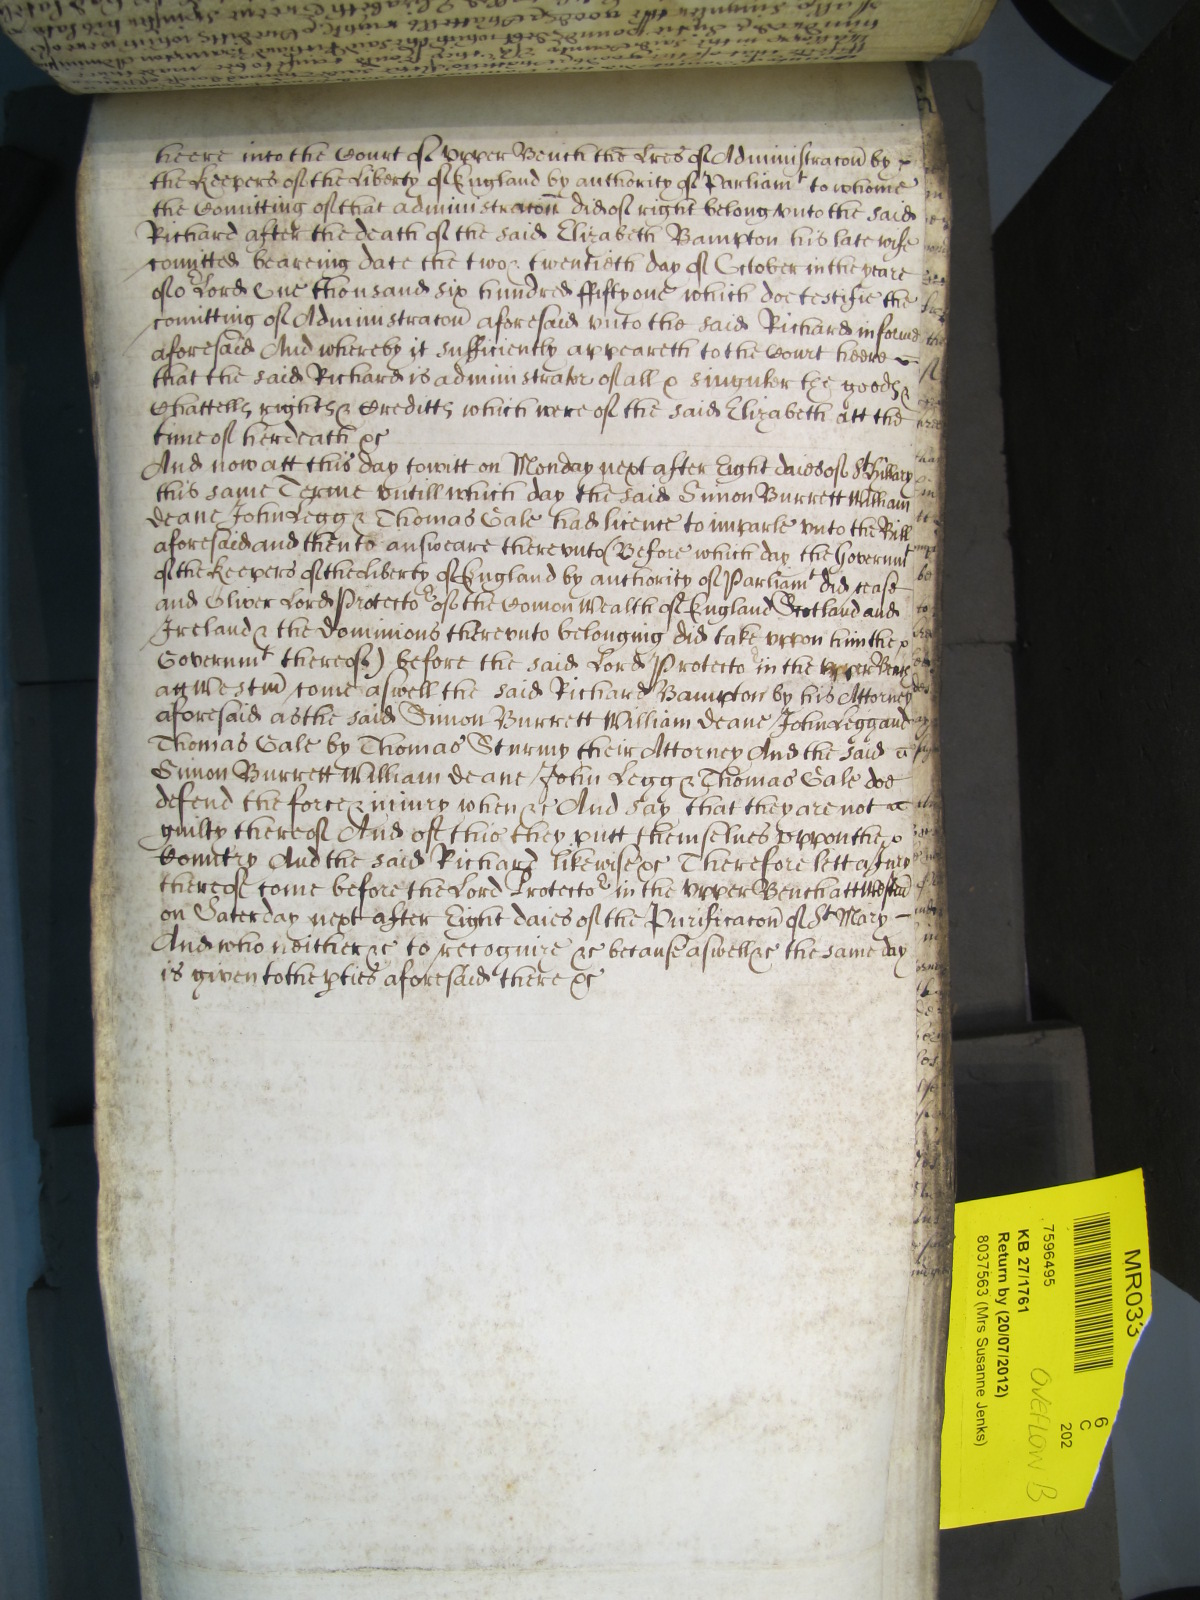 heere into the Court of Upper Bench the Lres of Administracon by
the Keepers of the Liberty of England by authority of Parliamt to whome
the Comitting of that administracon did of right belong unto the said
Richard after the death of the said Elizabeth Bampton his late wife
comitted beareing date the two & twentieth day of October in the yeare
of or Lord One thousand six hundred ffifty one which doe testifie the
comitting of Administracon aforesaid unto the said Richard in forme
aforesaid And whereby it sufficiently appeareth to the Court heere
that the said Richard is administrator of all & singuler the goods &
Chattells rights & Creditts which were of the said Elizabeth att the
time of her death &c
And now att this day to witt on Monday next after Eight daies of St Hillary
this same Terme untill which day the said Simon Burrett William
Deane John Legg & Thomas Gale had licence to imparle unto the Bill
aforesaid and then to answeare thereunto (Before which day the Governmt
of the Keepers of the liberty of England by authority of Parliamt did cease
and Oliver Lord Protector of the Comon Wealth of England Scotland and
Ireland & the Dominions thereunto belonging did take uppon him the
Governmt thereof) before the said Lord Protector in the Upper Bench
att Westm come aswell the said Richard Bampton by his Attorney
aforesaid as the said Simon Burrett William Deane John Legg and
Thomas Gale by Thomas Sturmy their Attorney And the said
Simon Burrett William Deane John Legg & Thomas Gale doe
defend the force & iniury when &c And say that they are not
guilty thereof And of this they putt themselves uppon the
Country And the said Richard likewise &c Therefore lett a Jury
thereof come before the Lord Protector in the Upper Bench att Westm
on Saterday next after Eight daies of the Purificacon of St Mary
And who neither &c to recognize &c because aswell &c the same day
is given to the pties aforesaid there &c
MR033
7596495
KB 27/1761
Return by (20/07/2012)
8037563 (Mrs Susanne Jenks)
6
C
202
OVEFLOW B